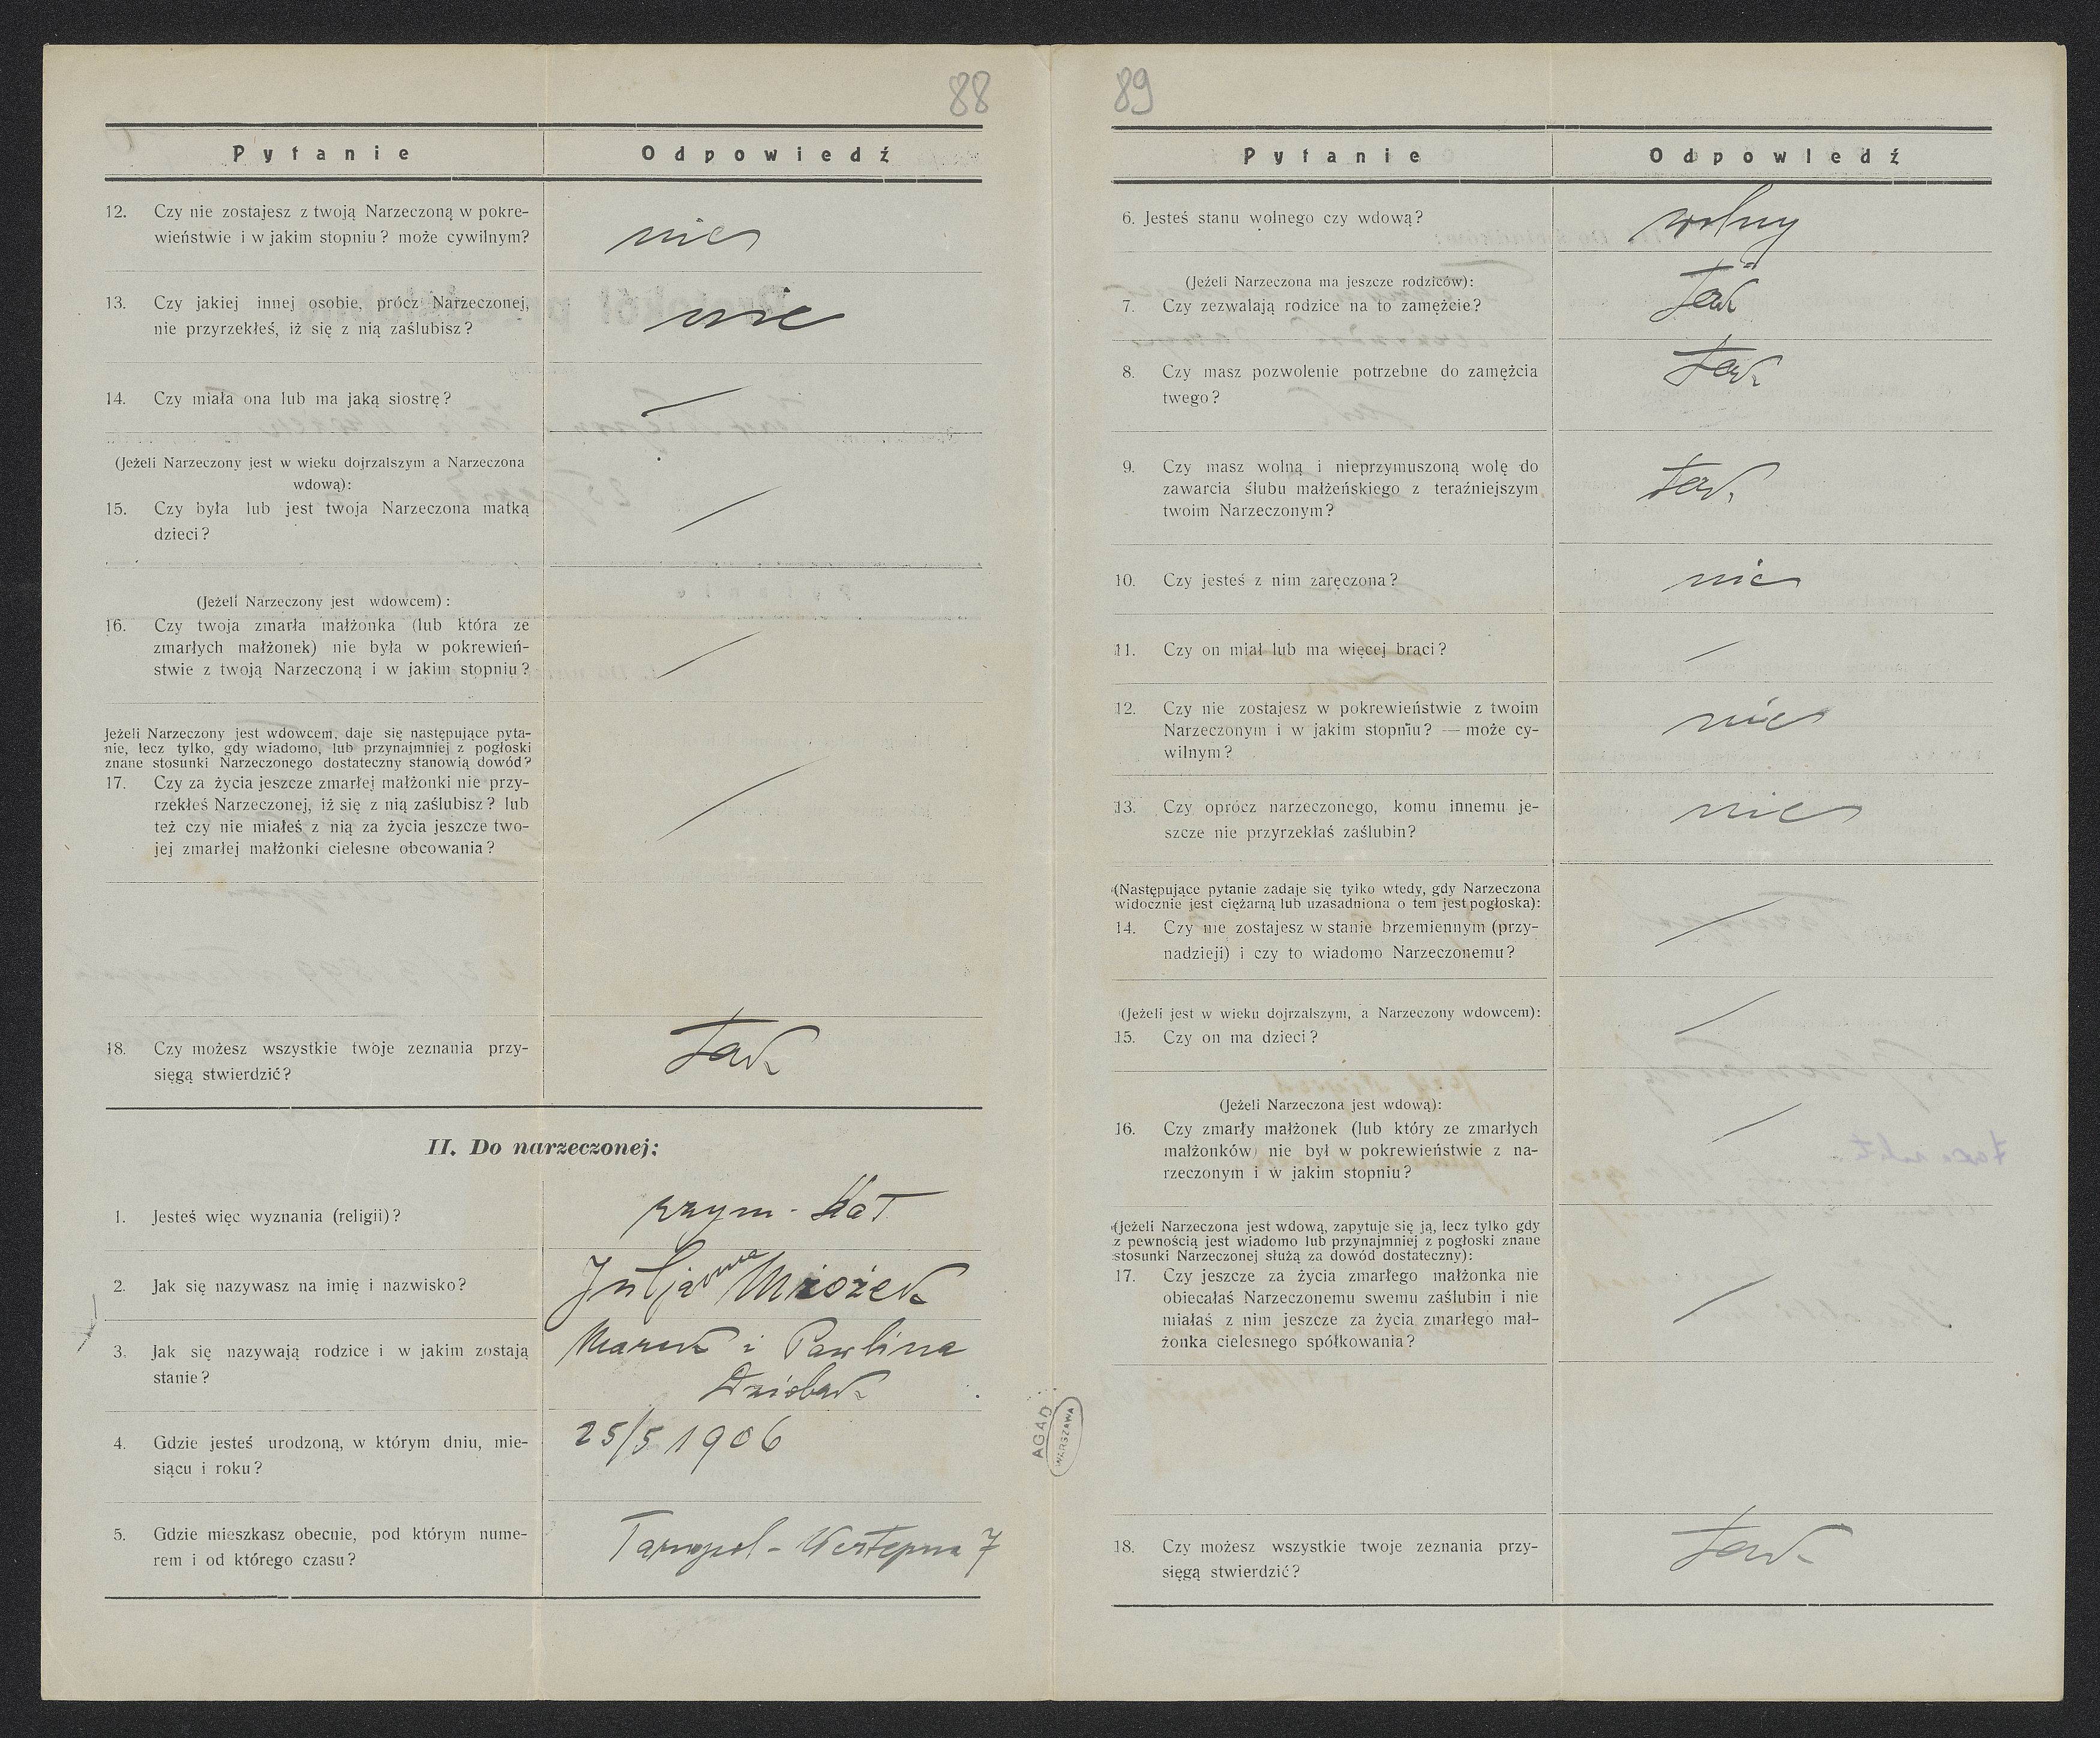 88
Pytanie Odpowiedź
12. Czy nie zostajesz z twoją Narzeczoną w pokre-
wieństwie i w jakim stopniu? może cywilnym?
nie
13. Czy jakiej innej osobie, prócz Narzeczonej,
nie przyrzekłeś, iż się z nią zaślubisz?
nie
14. Czy miała ona lub ma jaką siostrę?
(Jeżeli Narzeczony jest w wieku dojrzalszym a Narzeczona
wdową):
15. Czy była lub jest twoja Narzeczona matką
dzieci?
(Jeżeli Narzeczony jest wdowcem):
16. Czy twoja zmarła małżonka (lub która ze
zmarłych małżonek) nie była w pokrewień-
stwie z twoją Narzeczoną i w jakim stopniu?
Jeżeli Narzeczony jest wdowcem, daje się następujące pyta-
nie, lecz tylko, gdy wiadomo, lub przynajmniej z pogłoski
znane stosunki Narzeczonego dostateczny stanowią dowód?
17. Czy za życia jeszcze zmarłej małżonki nie przy-
rzekłeś Narzeczonej, iż się z nią zaślubisz? lub
też czy nie miałeś z nią za życia jeszcze two-
jej zmarłej małżonki cielesne obcowania?
18. Czy możesz wszystkie twoje zeznania przy-
sięgą stwierdzić?
Tak
II. Do narzeczonej:
1. Jesteś więc wyznania (religii)?
rzym. Kat
2. Jak się nazywasz na imię i nazwisko?
Juljanna Mrożek
3. Jak się nazywają rodzice i w jakim zostają
stanie?
Marek i Paulina
4. Gdzie jesteś urodzoną, w którym dniu, mie-
siącu i roku?
25/5 1906
5. Gdzie mieszkasz obecnie, pod którym nume-
rem i od którego czasu?
Tarnopol - 7
AGAD
WARSZAWA
89
Pytanie Odpowiedź
6. Jesteś stanu wolnego czy wdową?
wolny
(Jeżeli Narzeczona ma jeszcze rodziców):
7. Czy zezwalają rodzice na to zamężcie?
Tak
8. Czy masz pozwolenie potrzebne do zamężcia
twego?
Tak
9. Czy masz wolną i nieprzymuszoną wolę do
zawarcia ślubu małżeńskiego z teraźniejszym
twoim Narzeczonym?
Tak
10. Czy jesteś z nim zaręczona?
nie
11. Czy on miał lub ma więcej braci?
12. Czy nie zostajesz w pokrewieństwie z twoim
Narzeczonym i w jakim stopniu? — może cy-
wilnym?
nie
13. Czy oprócz narzeczonego, komu innemu je-
szcze nie przyrzekłaś zaślubin?
nie
(Następujące pytanie zadaje się tylko wtedy, gdy Narzeczona
widocznie jest ciężarną lub uzasadniona o tem jest pogłoska):
14. Czy nie zostajesz w stanie brzemiennym (przy-
nadzieji) i czy to wiadomo Narzeczonemu?
(Jeżeli jest w wieku dojrzalszym, a Narzeczony wdowcem):
15. Czy on ma dzieci?
(Jeżeli Narzeczona jest wdową):
16. Czy zmarły małżonek (lub który ze zmarłych
małżonków) nie był w pokrewieństwie z na-
rzeczonym i w jakim stopniu?
(Jeżeli Narzeczona jest wdową, zapytuje się ją, lecz tylko gdy
z pewnością jest wiadomo lub przynajmniej z pogłoski znane
stosunki Narzeczonej służą za dowód dostateczny):
17. Czy jeszcze za życia zmarłego małżonka nie
obiecałaś Narzeczonemu swemu zaślubin i nie
miałaś z nim jeszcze za życia zmarłego mał-
żonka cielesnego spółkowania?
18. Czy możesz wszystkie twoje zeznania przy-
sięgą stwierdzić?
Tak